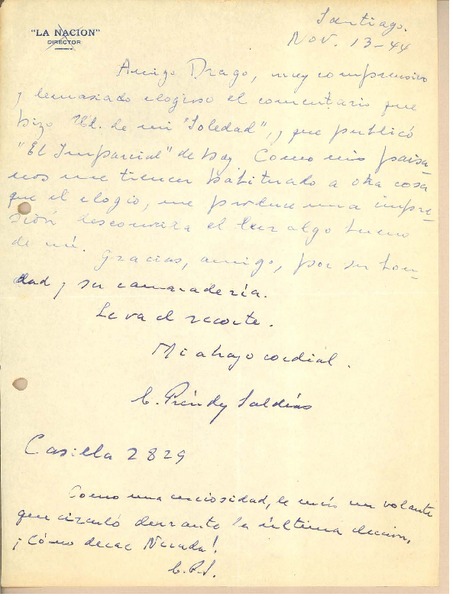 "LA NACION"
DIRECTOR
Santiago.
Nov. 13-44
Amigo Drago, muy comprensivo
y demasiado elogioso el comentario que
hizo Ud. de mi "Soledad", y que publicó
"El Imparcial" de hoy. Como mis paisa-
nos me tienen habituado a otra cosa
que el elogio, me produce una impre-
sión desconocida el leer algo bueno
de mí.
Gracias, amigo, por su bon-
dad y su camaradería.
Le va el recorte.
Mi abrazo cordial.
C. Préndez Saldías
Casilla 2829
Como una curiosidad, le envío un volante
que circuló durante la última elección,
¡Cómo decae !
C.P.S.